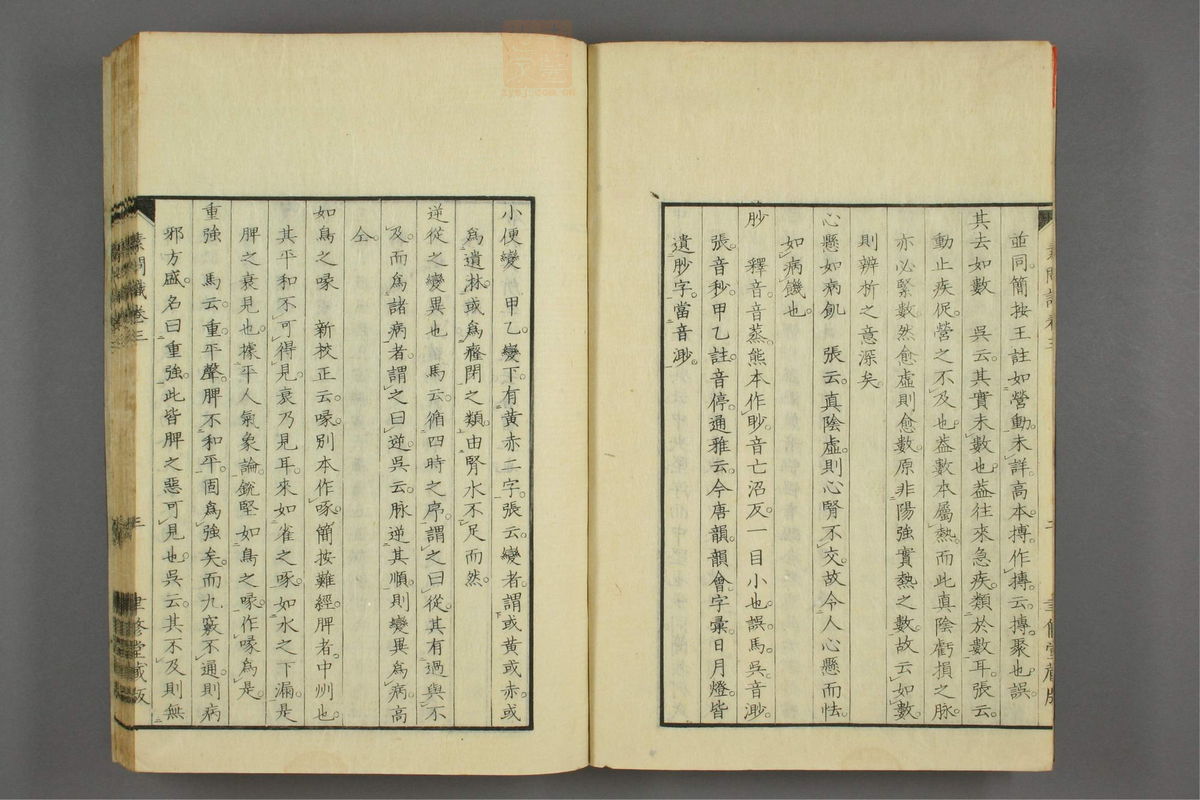 並同簡按王註如營動未詳高本摶作摶云摶聚也誤
其去如數　吳云其實未數也葢往來急疾類於數耳張云
動止疾促營之不及也葢數本屬熱而此真陰虧損之脉
亦必緊數然愈虛則愈數原非陽強實熱之數故云如數
則辨析之意深矣
心懸如病飢　張云真陰虛則心腎不交故令人心懸而怯
如病饑也
䏚　釋音音蒸熊本作眇音亡沼反一目小也誤馬吳音渺
張音秒甲乙註音停通雅云今唐韻韻會字彙日月燈皆
遺䏚字當音渺
小便變　甲乙變下有黃赤二字張云變者謂或黃或赤或
為遺淋或為癃閉之類由腎水不足而然
逆從之變異也　馬云循四時之序謂之曰從其有過與不
及而為諸病者謂之曰逆吳云脉逆其順則變異為病高
仝
如鳥之喙　新校正云喙別本作啄簡按難經脾者中州也
其平和不可得見衰乃見耳來如雀之啄如水之下漏是
脾之衰見也據平人氣象論銳堅如鳥之喙作喙為是
重強　馬云重平聲脾不和平固為強矣而九竅不通則病
邪方盛名曰重強此皆脾之惡可見也吳云其不及則無
素問識卷三
三
聿修堂藏版